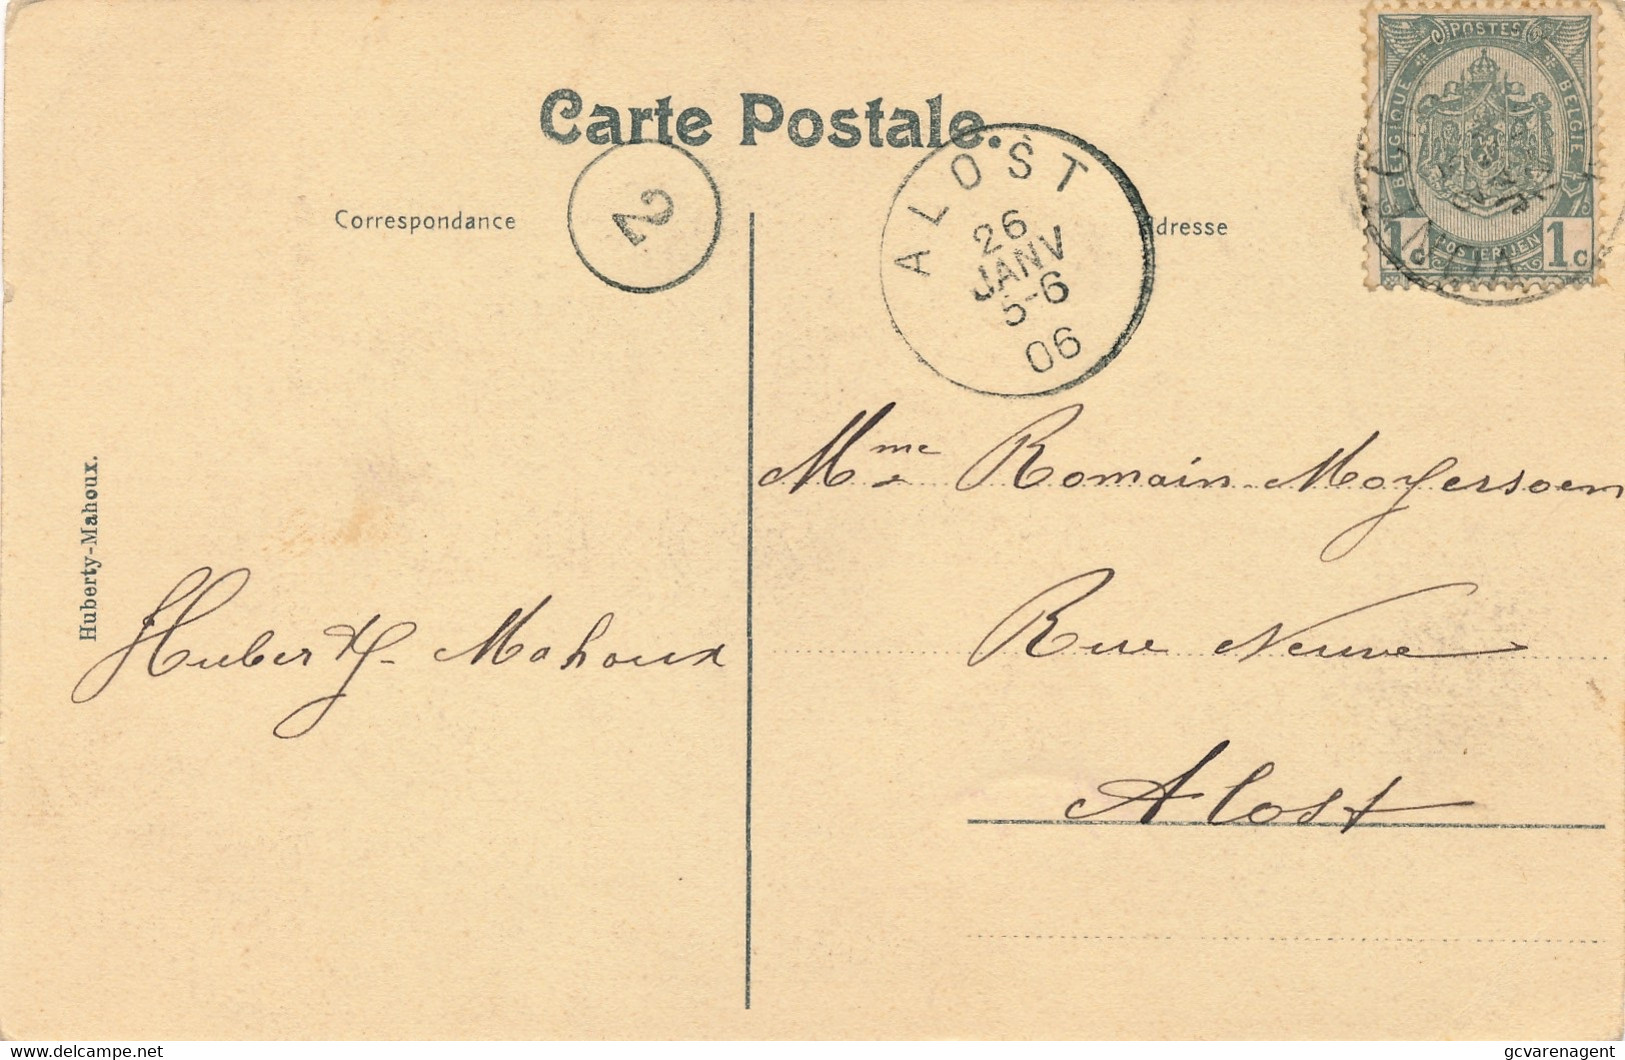 POSTES
BELGIQUE
BELGIE
POSTERIJEN
1c
1c
Carte Postale.
2
ALOST
26
JANV
5-6
06
Correspondance
Adresse
Mme Romain Moyersoen
Huberty-Mahoux.
Huberty-Mahoux
Rue Neuve
Alost
delcampe.net
gcvarenagent